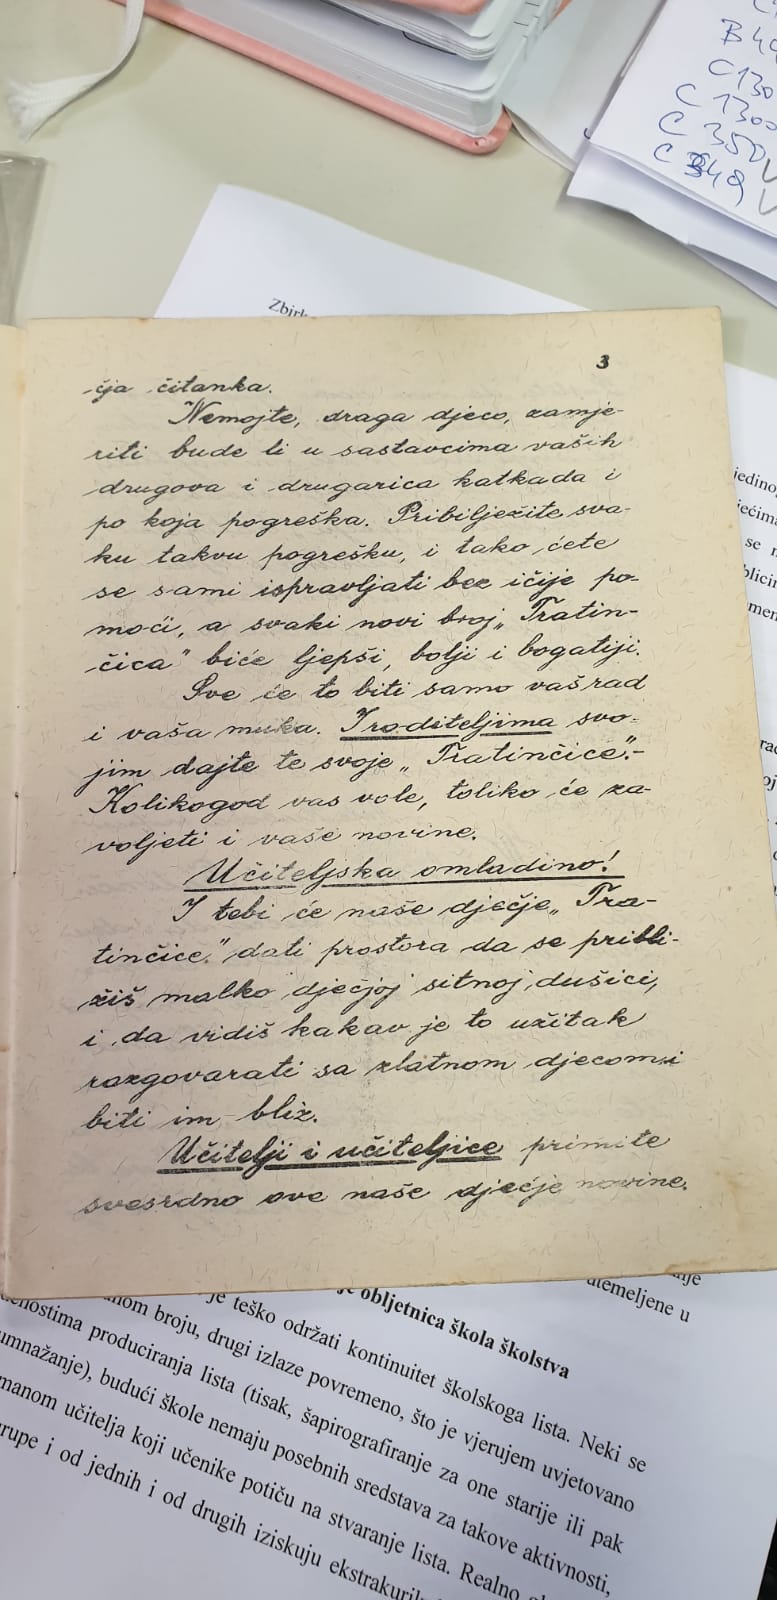 B 44
C 130
C 1300
C 350 V
C 349 V
Zbirk
3
čja čitanka.
Nemojte, draga djeco, zamje-
riti bude li u sastavcima vaših
drugova i drugarica katkada i
po koja pogreška. Pribilježite sva-
ku takvu pogrešku, i tako ćete
se sami ispravljati bez ičije po-
moći, a svaki novi broj „Tratin-
čica" biće ljepši, bolji i bogatiji.
Sve će to biti samo vaš rad
i vaša muka. I roditeljima svo-
jim dajte te svoje „Tratinčice".-
Kolikogod vas vole, toliko će za-
voljeti i vaše novine.
Učiteljska omladino!
I tebi će naše dječje „Tra-
tinčice" dati prostora da se pribli-
žiš malko dječjoj sitnoj dušici,
i da vidiš kakav je to užitak
razgovarati sa zlatnom djecom i
biti im bliz.
Učitelji i učiteljice primite
svesrdno ove naše dječje novine.
jedinog
ječima
se n
blicin
men
rad
oj
obljetnica škola školstva
utemeljene u
nom broju, drugi izlaze povremeno, što je vjerujem uvjetovano
je teško održati kontinuitet školskoga lista. Neki se
nostima produciranja lista (tisak, šapirografiranje za one starije ili pak
umnažanje), budući škole nemaju posebnih sredstava za takove aktivnosti,
manom učitelja koji učenike potiču na stvaranje lista. Realno
rupe i od jednih i od drugih iziskuju ekstrakurik